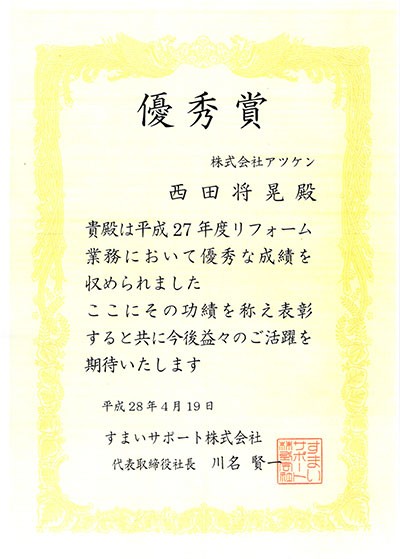 優秀賞
株式会社アツケン
西田将晃殿
貴殿は平成27年度リフォーム
業務において優秀な成績を
収められました
ここにその功績を称え表彰
すると共に今後益々のご活躍を
期待いたします
平成28年4月19日
すまいサポート株式会社
代表取締役社長 川名 賢一
すまい
サポート
株式会社